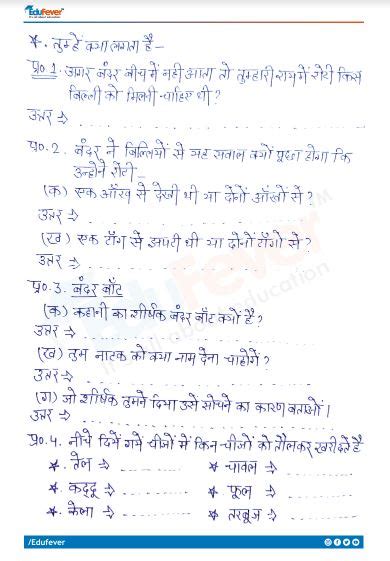 Edufever
★. तुम्हें क्या लगता है –
प्र०1. अगर बंदर बीच में नहीं आता तो तुम्हारी राय में रोटी किस
बिल्ली को मिलनी चाहिए थी?
उत्तर ⇒
प्र०2. बंदर ने बिल्लियों से यह सवाल क्यों पूछा होगा कि
उन्होंने रोटी –
(क) एक आँख से देखी थी या दोनों आँखों से?
उत्तर ⇒
(ख) एक टाँग से झपटी थी या दोनों टाँगों से?
उत्तर ⇒
प्र०3. बंदर बाँट
(क) कहानी का शीर्षक बंदर बाँट क्यों है?
उत्तर ⇒
(ख) तुम नाटक को क्या नाम देना चाहोगे?
उत्तर ⇒
(ग) जो शीर्षक तुमने दिया उसे सोचने का कारण बताओ।
उत्तर ⇒
प्र०4. नीचे दिये गये चीजों में किन-चीजों को तौलकर खरीदते है
★. तेल ⇒ ★ चावल ⇒
★. कद्दू ⇒ ★ फूल ⇒
★. केला ⇒ ★ तरबूज ⇒
/Edufever